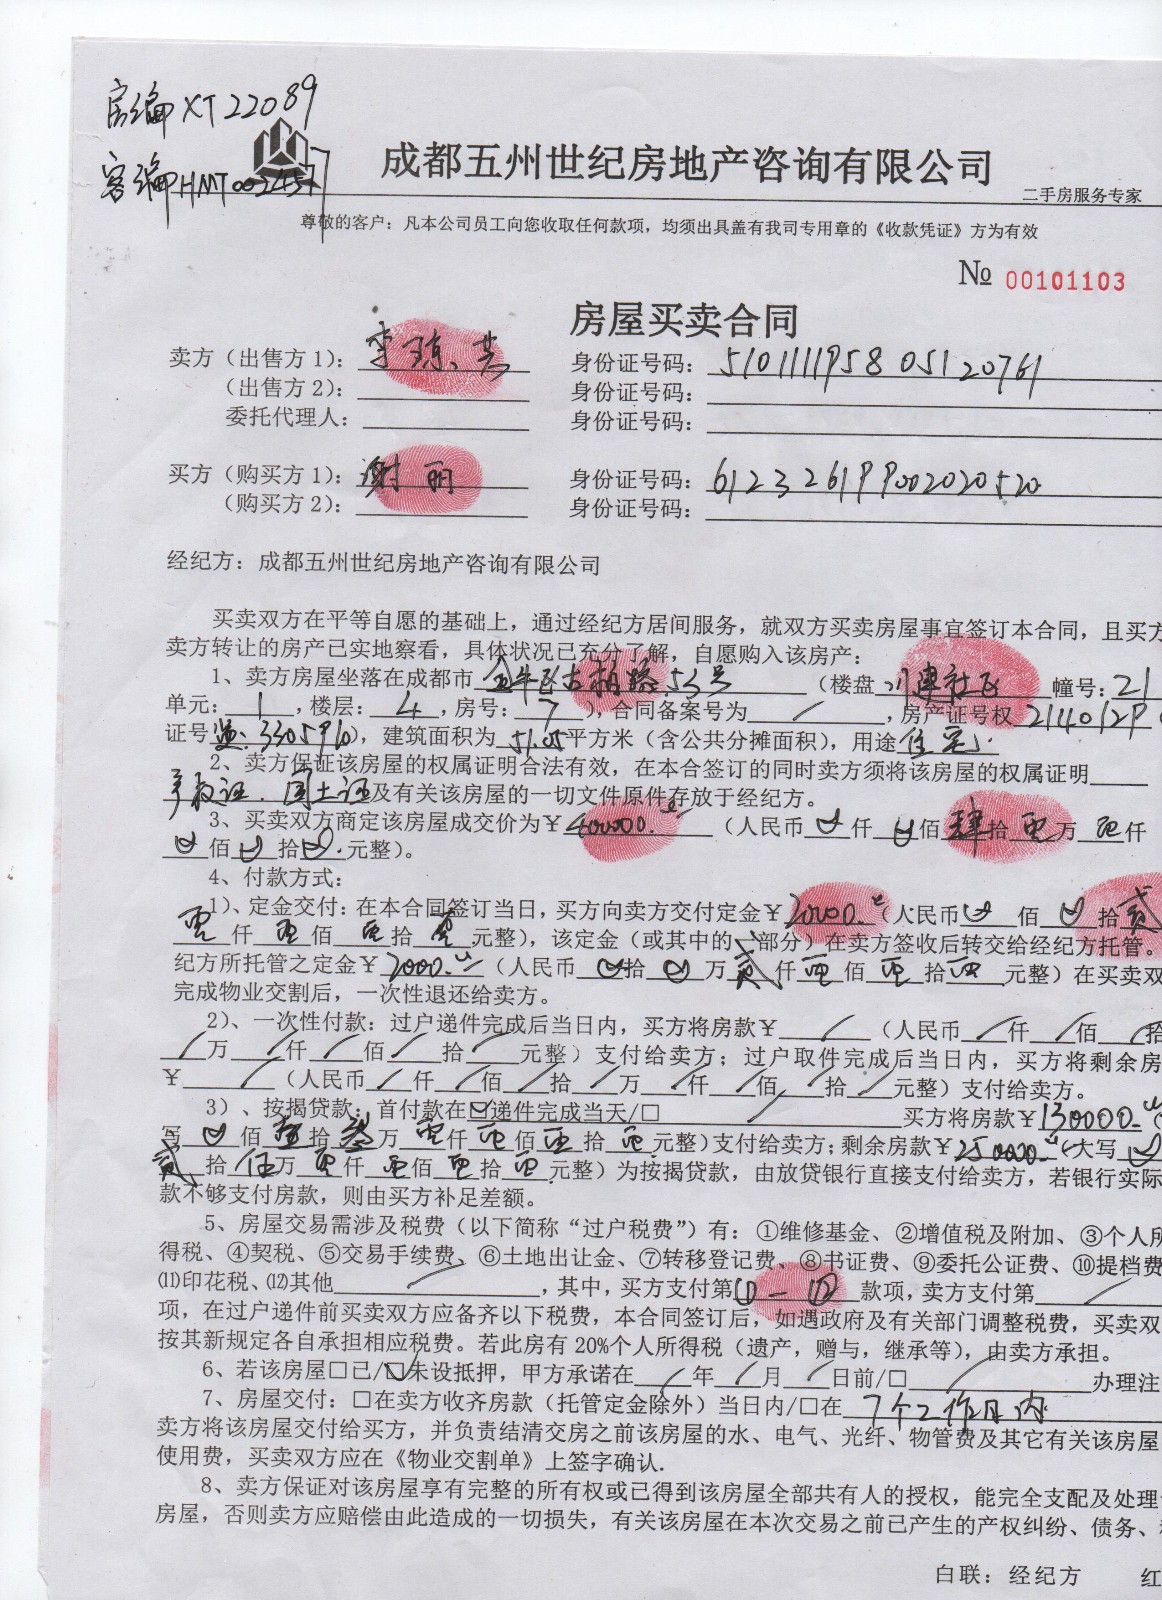 房编XT22089
客编HMT0034577
成都五州世纪房地产咨询有限公司
二手房服务专家
尊敬的客户：凡本公司员工向您收取任何款项，均须出具盖有我司专用章的《收款凭证》方为有效
№ 00101103
房屋买卖合同
卖方（出售方1）：李琼芳 身份证号码：510111195805120761
（出售方2）： 身份证号码：
委托代理人： 身份证号码：
买方（购买方1）：谢丽 身份证号码：612326199002020520
（购买方2）： 身份证号码：
经纪方：成都五州世纪房地产咨询有限公司
买卖双方在平等自愿的基础上，通过经纪方居间服务，就双方买卖房屋事宜签订本合同，且买方
卖方转让的房产已实地察看，具体状况已充分了解，自愿购入该房产：
1、卖方房屋坐落在成都市金牛区古柏路53号（楼盘川建社区 幢号：21
单元：1，楼层：4，房号：7），合同备案号为/，房产证号权2140129
证号监3305910），建筑面积为51.05平方米（含公共分摊面积），用途住宅
2、卖方保证该房屋的权属证明合法有效，在本合签订的同时卖方须将该房屋的权属证明
产权证.国土证及有关该房屋的一切文件原件存放于经纪方。
3、买卖双方商定该房屋成交价为￥400000.（人民币 仟 佰肆拾零万零仟
佰 拾 元整）。
4、付款方式：
1）、定金交付：在本合同签订当日，买方向卖方交付定金￥20000.（人民币 佰 拾贰
零仟零佰零拾零元整），该定金（或其中的 部分）在卖方签收后转交给经纪方托管。
纪方所托管之定金￥2000.（人民币 拾 万贰仟零佰零拾零元整）在买卖双
完成物业交割后，一次性退还给卖方。
2）、一次性付款：过户递件完成后当日内，买方将房款￥/（人民币/仟/佰/拾
/万/仟/佰/拾/元整）支付给卖方；过户取件完成后当日内，买方将剩余房
￥/（人民币/仟/佰/拾/万/仟/佰/拾/元整）支付给卖方。
3）、按揭贷款：首付款在☑递件完成当天/□/买方将房款￥130000.（
写 佰壹拾叁万零仟零佰零拾零元整）支付给卖方；剩余房款￥250000.（大写
贰拾伍万零仟零佰零拾零元整）为按揭贷款，由放贷银行直接支付给卖方，若银行实际
款不够支付房款，则由买方补足差额。
5、房屋交易需涉及税费（以下简称“过户税费”）有：①维修基金、②增值税及附加、③个人所
得税、④契税、⑤交易手续费、⑥土地出让金、⑦转移登记费、⑧书证费、⑨委托公证费、⑩提档费
⑾印花税、⑿其他/，其中，买方支付第①一⑫款项，卖方支付第/
项，在过户递件前买卖双方应备齐以下税费，本合同签订后，如遇政府及有关部门调整税费，买卖双
按其新规定各自承担相应税费。若此房有20%个人所得税（遗产，赠与，继承等），由卖方承担。
6、若该房屋□已/☑未设抵押，甲方承诺在/年/月/日前/□/办理注
7、房屋交付：□在卖方收齐房款（托管定金除外）当日内/□在7个工作日内
卖方将该房屋交付给买方，并负责结清交房之前该房屋的水、电气、光纤、物管费及其它有关该房屋
使用费，买卖双方应在《物业交割单》上签字确认.
8、卖方保证对该房屋享有完整的所有权或已得到该房屋全部共有人的授权，能完全支配及处理
房屋，否则卖方应赔偿由此造成的一切损失，有关该房屋在本次交易之前已产生的产权纠纷、债务、
白联：经纪方 红